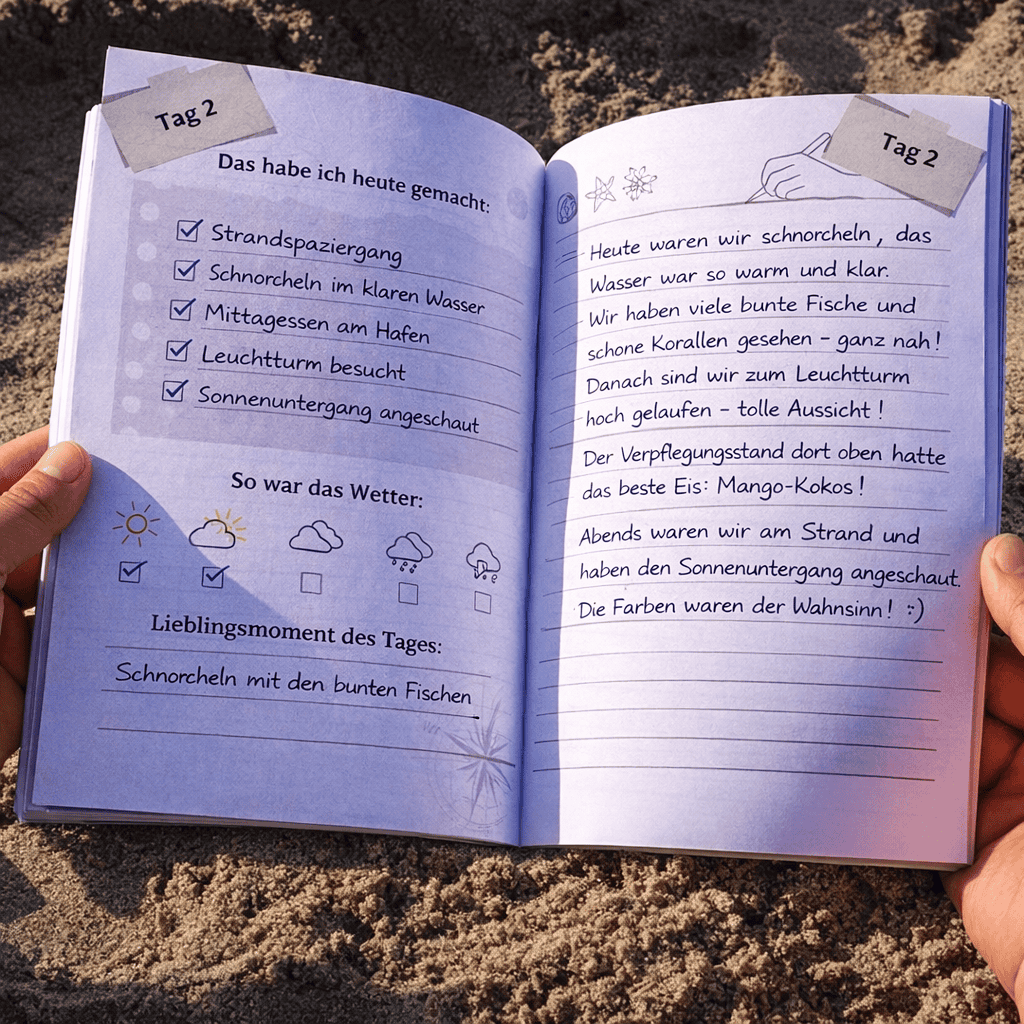 Tag 2
Das habe ich heute gemacht:
Strandspaziergang
Schnorcheln im klaren Wasser
Mittagessen am Hafen
Leuchtturm besucht
Sonnenuntergang angeschaut
So war das Wetter:
Lieblingsmoment des Tages:
Schnorcheln mit den bunten Fischen
Tag 2
Heute waren wir schnorcheln, das
Wasser war so warm und klar.
Wir haben viele bunte Fische und
schone Korallen gesehen – ganz nah!
Danach sind wir zum Leuchtturm
hoch gelaufen – tolle Aussicht!
Der Verpflegungsstand dort oben hatte
das beste Eis: Mango-Kokos!
Abends waren wir am Strand und
haben den Sonnenuntergang angeschaut.
Die Farben waren der Wahnsinn! :)